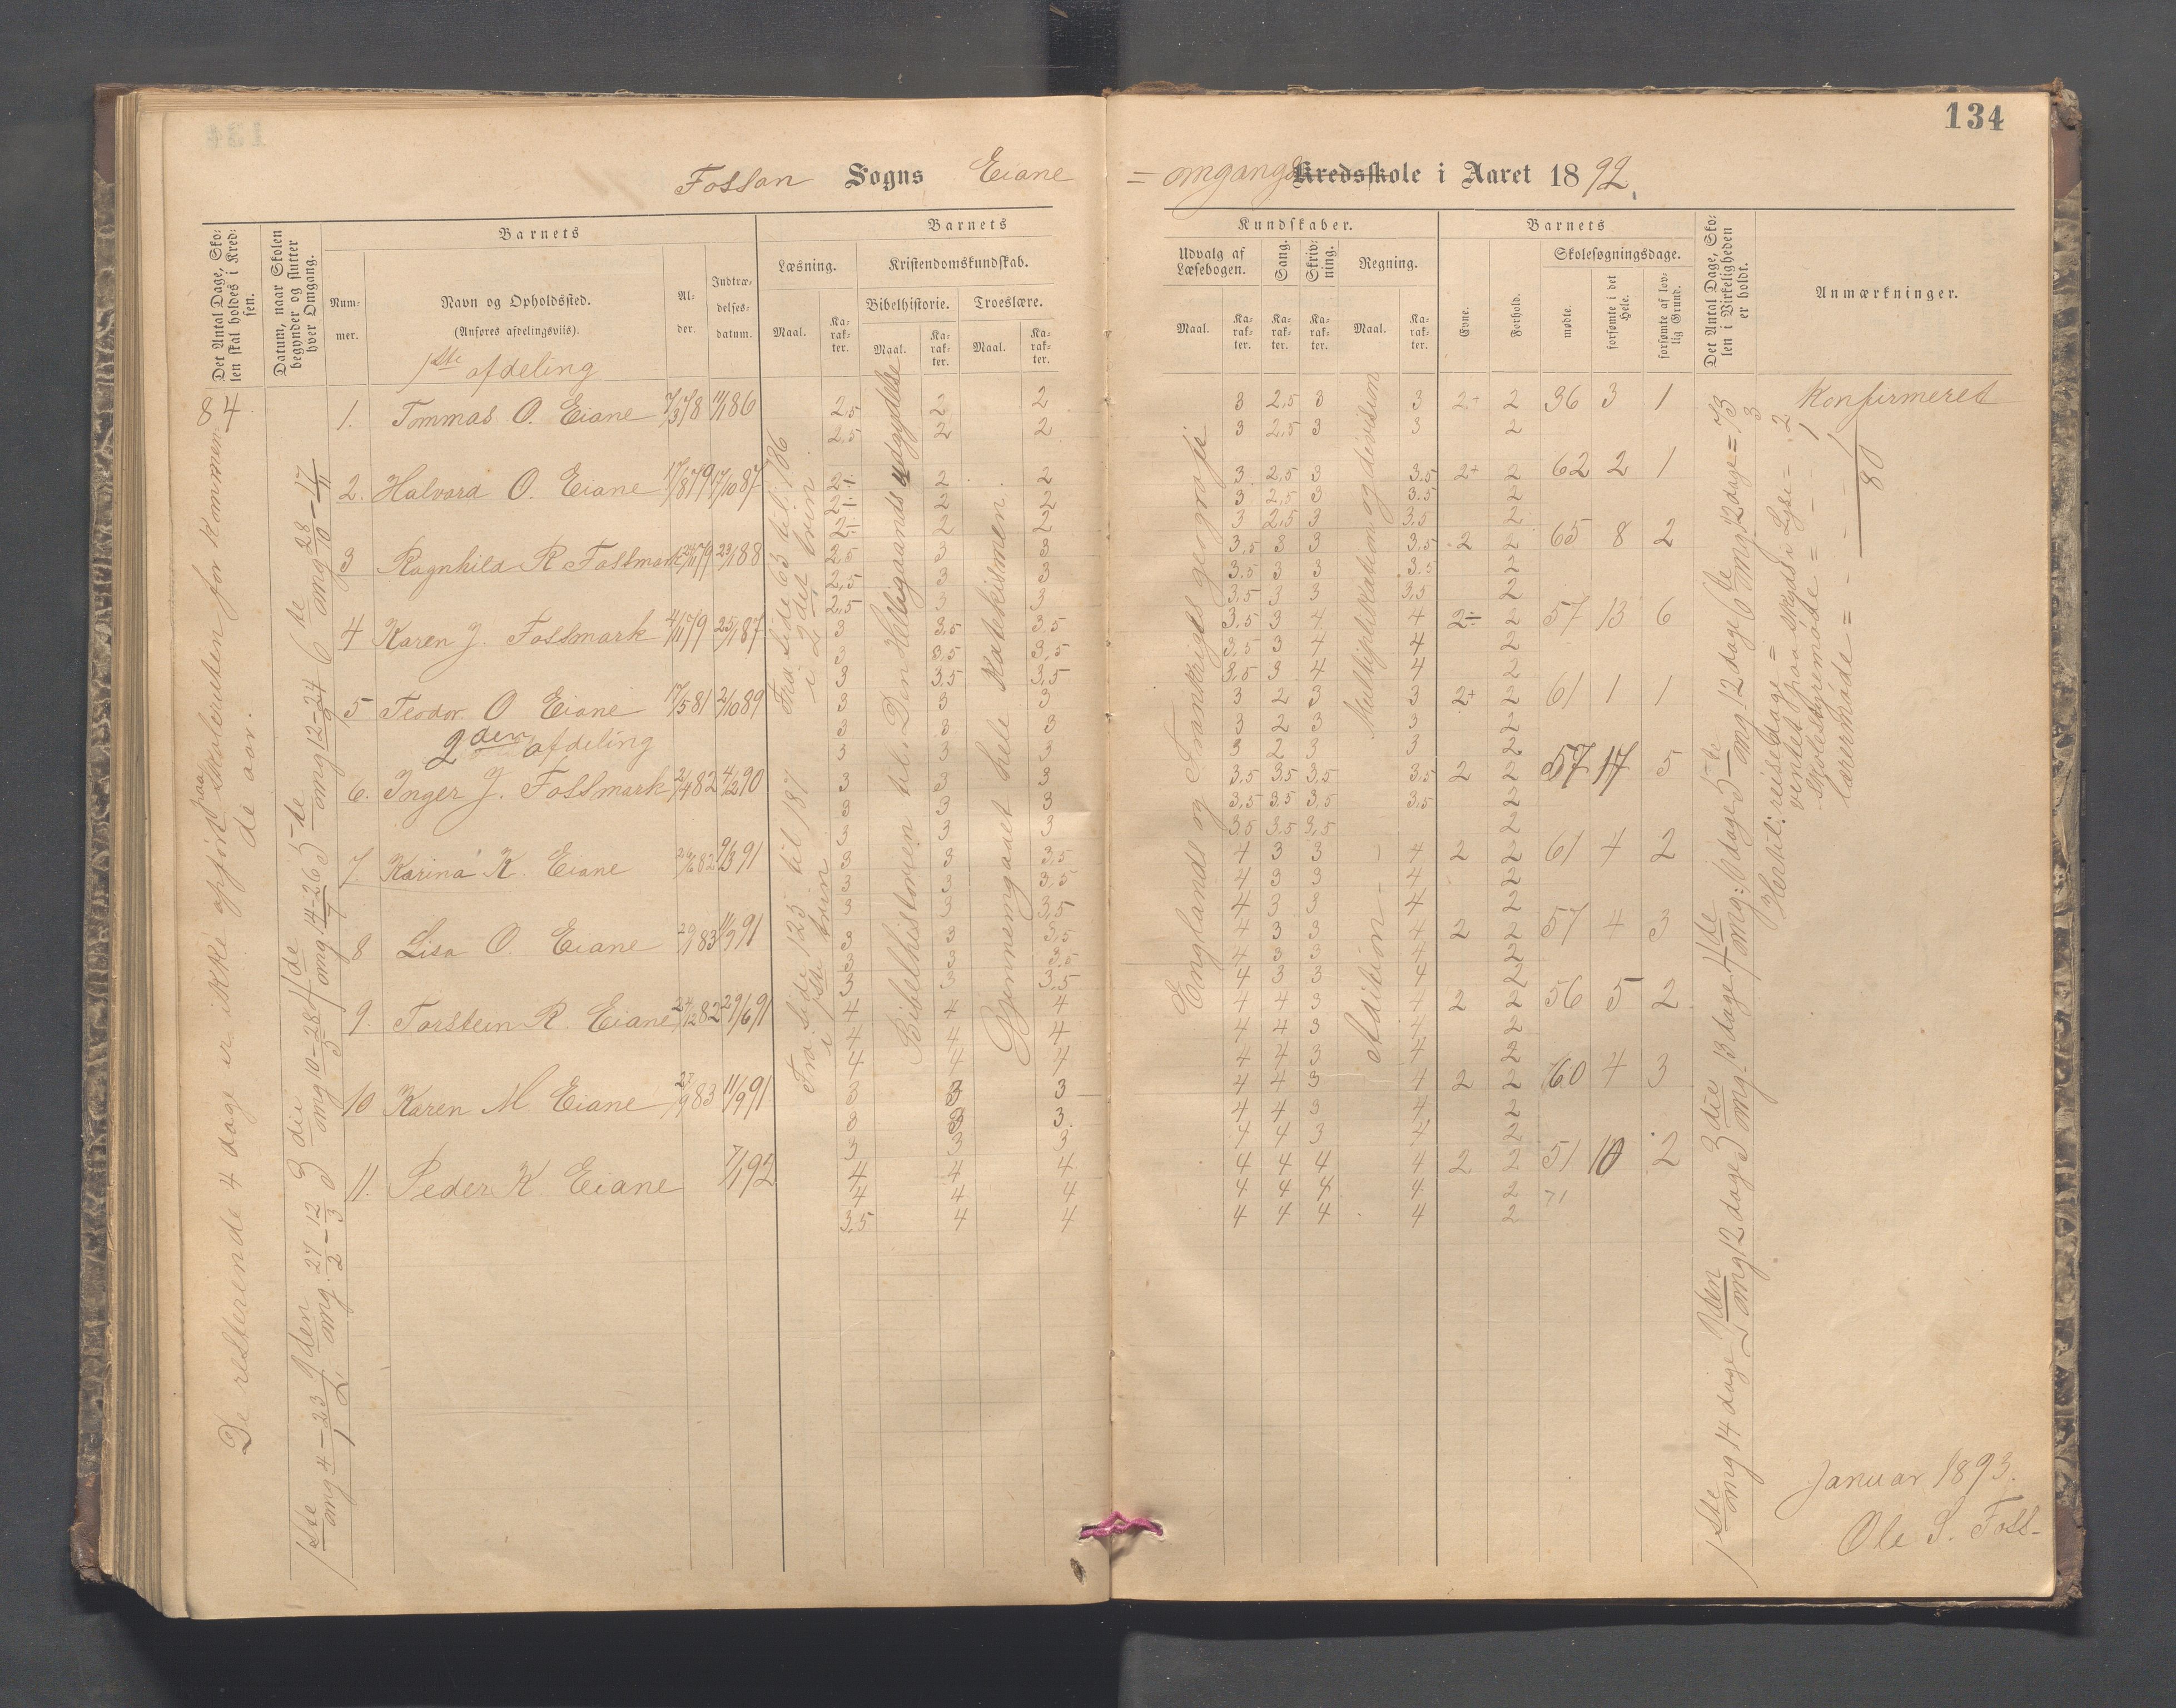 134
Fossan Sogns Eiane
= omgangs Kredsskole i Aaret 1892.
Det Antal Dage, Sko-
len skal holdes i Kred-
sen.
Datum, naar Skolen
begynder og slutter
hver Omgang.
Barnets
Num-
mer.
Navn og Opholdssted.
(Anføres afdelingsviis).
Al-
der.
Indtræ-
delses-
datum.
Barnets
Læsning.
Maal.
Ka-
rak-
ter.
Kristendomskundskab.
Bibelhistorie.
Maal.
Ka-
rak-
ter.
Troeslære.
Maal.
Ka-
rak-
ter.
Kundskaber.
Udvalg af
Læsebogen.
Maal.
Ka-
rak-
ter.
Sang.
Ka-
rak-
ter.
Skriv-
ning.
Ka-
rak-
ter.
Regning.
Maal.
Ka-
rak-
ter.
Barnets
Evne.
Forhold.
Skolesøgningsdage.
mødte.
forsømte i det
Hele.
forsømte af lov-
lig Grund.
Det Antal Dage, Sko-
len i Virkeligheden
er holdt.
Anmærkninger.
84
De resterende 4 dage er ikke opført paa skoleruten for kommen-
de aar.
1ste omg 4/1 – 23/1 2den omg. 27/2 – 12/3 3die omg 10 – 28/5 4de omg 14 – 26/7 5te omg 12 – 24/9 6te omg 28/10 – 17/11
1ste afdeling
1. Tommas O. Eiane 7/3 78 11/1 86 2,5 2 2 3 2,5 3 3 2+ 2 36 3 1 Konfirmeret
2,5 2 2 3 2,5 3 3 2
2. Halvard O. Eiane 17/8 79 17/10 87 2÷ 2 2 3 2,5 3 3.5 2+ 2 62 2 1
2÷ 2 2 3 2,5 3 3.5 2
2÷ 2 2 3 2,5 3 3,5 2
3 Ragnhild R Fossmark 24/11 79 23/1 88 2,5 3 3 3,5 3 3 3,5 2 2 65 8 2
2,5 3 3 3,5 3 3 3.5 2
2,5 3 3 3,5 3 3 3,5 2
4 Karen J. Fossmark 4/11 79 25/1 87 3 3,5 3,5 3,5 3 4 4 2÷ 2 57 13 6
3 3,5 3,5 3,5 3 4 4 2
3 3,5 3,5 3,5 3 4 4 2
5 Teodor O Eiane 17/5 81 2/10 89 3 3 3 3 2 3 3 2+ 2 61 1 1
3 3 3 3 2 3 3 2
3 3 3 3 2 3 3 2
2den afdeling
6. Inger J. Fossmark 2/4 82 4/2 90 3 3 3 3,5 3,5 3,5 3,5 2 2 57 17 5
3 3 3 3,5 3,5 3,5 3,5 2
3 3 3 3,5 3,5 3,5 2
7. Karina K. Eiane 26/6 82 9/3 91 3 3 3,5 4 3 3 4 2 2 61 4 2
3 3 3,5 4 3 3 4 2
3 3 3,5 4 3 3 4 2
8 Lisa O. Eiane 83 11/9 91 3 3 3,5 4 3 3 4 2 2 57 4 3
3 3 3,5 4 3 3 4 2
3 3 3,5 4 3 3 4 2
9. Torstein R. Eiane 24/12 82 29/6 91 4 4 4 4 4 3 4 2 2 56 5 2
4 4 4 4 4 3 4 2
4 4 4 4 4 3 4 2
10 Karen M. Eiane 27/9 83 11/9 91 3 3 3 4 4 3 4 2 2 60 4 3
3 3 3 4 4 3 4 2
3 3 3 4 4 3 4 2
11. Peder K Eiane 7/1 92 4 4 4 4 4 4 4 2 2 51 10 2
4 4 4 4 4 4 4 2 71
3,5 4 4 4 4 4 4 2
Fra side 63 til 186
i 2det trin
Fra side 125 til 187
i 1ste trin
Bibelhistorien til: Den Helligaands udgydelse
Gjennemgaaet hele Katekismen.
Englands og Frankriges geografi
Multiplikation og division
Adition
1ste omg 14 dage 2den omg 12 dage 3die omg. 13 dage 4de omg: 10 dage 5te omg. 12 dage 6te omg 12 dage = 73
Hertil: reisedage = 3
ventet paa skyds i Lyse = 2
Skolestyremøde = 1
lærermøde = 1
80
Januar 1893.
Ole S. Foss-